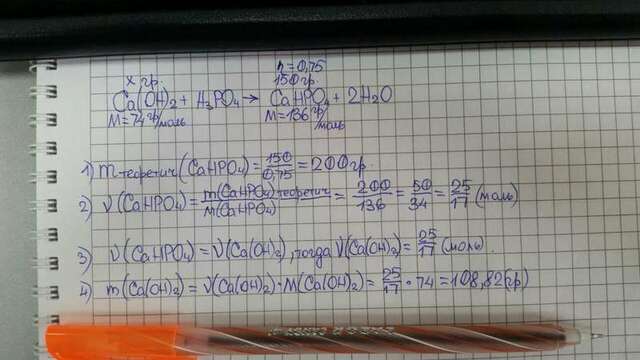 x гр.
η = 0,75
150 гр.
Ca(OH)₂ + H₃PO₄ → CaHPO₄ + 2H₂O
M = 74 гр/моль
M = 136 гр/моль
1) m теоретич (CaHPO₄) = 150/0,75 = 200 гр.
2) ν (CaHPO₄) = m(CaHPO₄) теоретич / M(CaHPO₄) = 200/136 = 50/34 = 25/17 (моль)
3) ν (CaHPO₄) = ν(Ca(OH)₂), тогда ν(Ca(OH)₂) = 25/17 (моль).
4) m(Ca(OH)₂) = ν(Ca(OH)₂) · M(Ca(OH)₂) = 25/17 · 74 = 108,82 (гр)